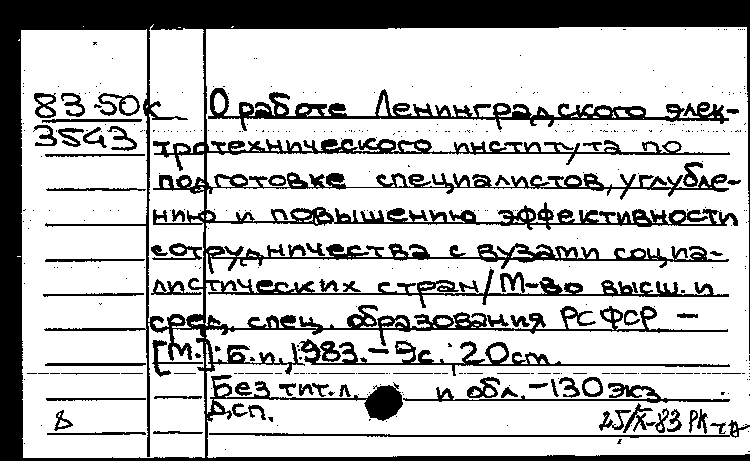 83-50к О работе Ленинградского элек-
3543 тротехнического института по
подготовке специалистов, углубле-
нию и повышению эффективности
сотрудничества с вузами социа-
листических стран/М-во высш. и
сред. спец. образования РСФСР —
[М.]: Б.и., 1983. - 9с.; 20 см.
Без тит. л. и обл. - 130 экз.
Дсп.
25/X-83 РК